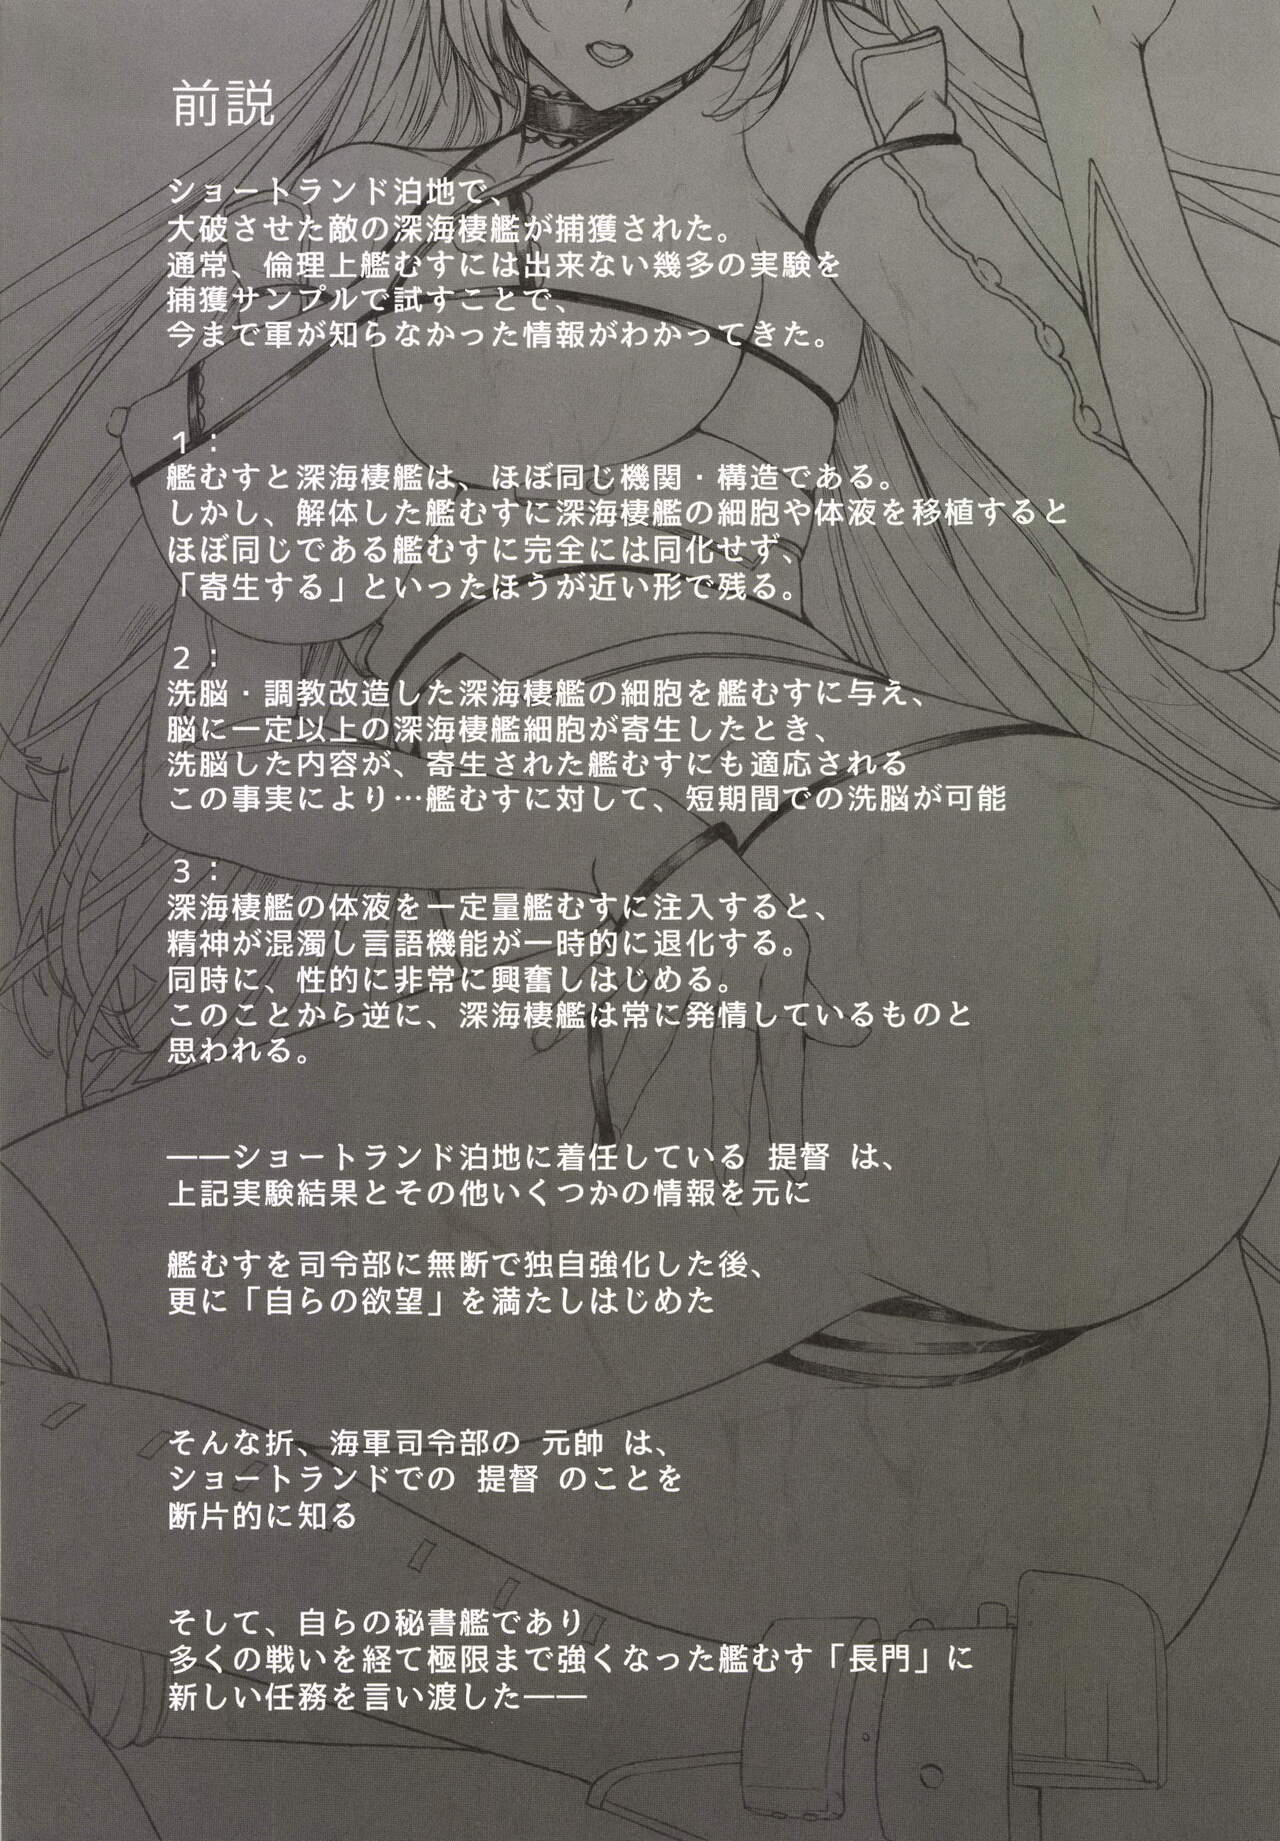 前説
ショートランド泊地で、
大破させた敵の深海棲艦が捕獲された。
通常、倫理上艦むすには出来ない幾多の実験を
捕獲サンプルで試すことで、
今まで軍が知らなかった情報がわかってきた。
１：
艦むすと深海棲艦は、ほぼ同じ機関・構造である。
しかし、解体した艦むすに深海棲艦の細胞や体液を移植すると
ほぼ同じである艦むすに完全には同化せず、
「寄生する」といったほうが近い形で残る。
２：
洗脳・調教改造した深海棲艦の細胞を艦むすに与え、
脳に一定以上の深海棲艦細胞が寄生したとき、
洗脳した内容が、寄生された艦むすにも適応される
この事実により…艦むすに対して、短期間での洗脳が可能
３：
深海棲艦の体液を一定量艦むすに注入すると、
精神が混濁し言語機能が一時的に退化する。
同時に、性的に非常に興奮しはじめる。
このことから逆に、深海棲艦は常に発情しているものと
思われる。
――ショートランド泊地に着任している 提督 は、
上記実験結果とその他いくつかの情報を元に
艦むすを司令部に無断で独自強化した後、
更に「自らの欲望」を満たしはじめた
そんな折、海軍司令部の 元帥 は、
ショートランドでの 提督 のことを
断片的に知る
そして、自らの秘書艦であり
多くの戦いを経て極限まで強くなった艦むす「長門」に
新しい任務を言い渡した――